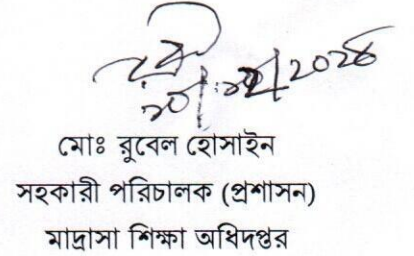 মোঃ রুবেল হোসাইন
সহকারী পরিচালক (প্রশাসন)
মাদ্রাসা শিক্ষা অধিদপ্তর